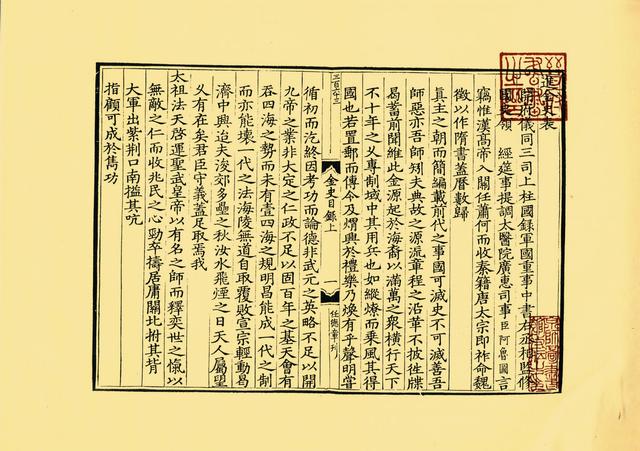 進金史表
開府儀同三司上柱國錄軍國重事中書右丞相監修
國史領 經筵事提調太醫院廣惠司事臣阿魯圖言
竊惟漢高帝入關任蕭何而收秦籍唐太宗即祚命魏
徵以作隋書蓋曆數歸
真主之朝而簡編載前代之事國可滅史不可滅善吾
師惡亦吾師矧夫典故之源流章程之沿革不披往牒
曷蓄前聞維此金源起於海裔以滿萬之衆橫行天下
不十年之久專制域中其用兵也如縱燎而乘風其得
國也若置郵而傳令及煟興於禮樂乃煥有乎聲明嘗
金史目錄上
一
任德章刊
循初而汔終因考功而論德非武元之英略不足以開
九帝之業非大定之仁政不足以固百年之基天會有
吞四海之勢而未有壹四海之規明昌能成一代之制
而亦能壞一代之法海陵無道自取覆敗宣宗輕動曷
濟中興迨夫浚郊多壘之秋汝水飛煙之日天人屬望
久有在矣君臣守義蓋足取焉我
太祖法天啓運聖武皇帝以有名之師而釋奕世之愾以
無敵之仁而收兆民之心勁卒擣居庸關北拊其背
大軍出紫荆口南搤其吭
指顧可成於雋功